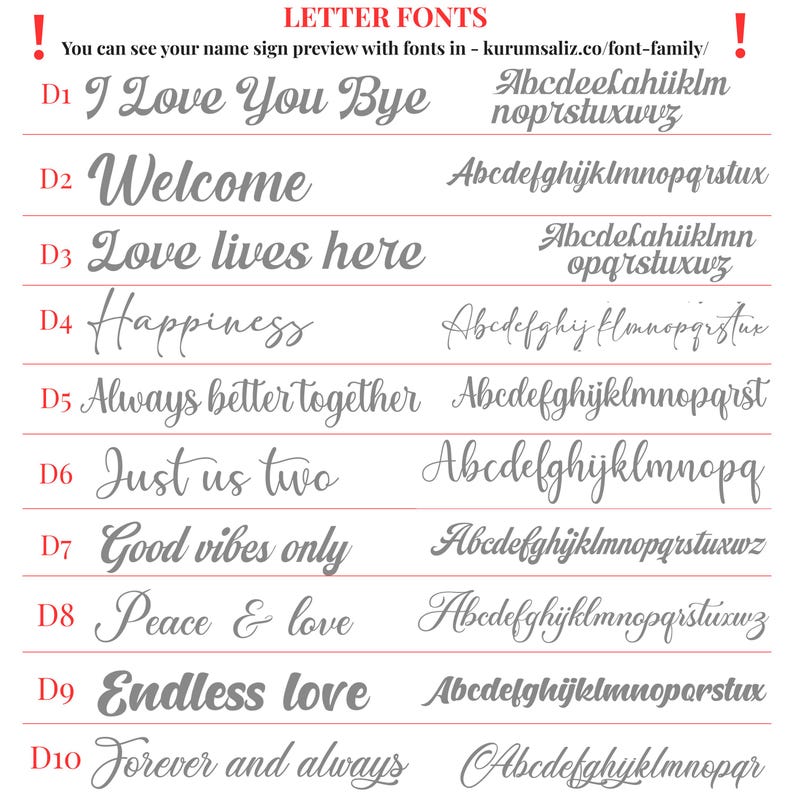 LETTER FONTS
! You can see your name sign preview with fonts in - kurumsaliz.co/font-family/ !
D1 I Love You Bye AbcdeeLahiiklm
noprstuxwvz
D2 Welcome Abcdefghijklmnopqrstux
D3 Love lives here AbcdeLahiiklmn
opqrstuxwz
D4 Happiness Abcdefghijklmnopqrstux
D5 Always better together Abcdefghijklmnopqrst
D6 Just us two Abcdefghijklmnopq
D7 Good vibes only Abcdefghijklmnopqrstuxwz
D8 Peace & love Abcdefghijklmnopqrstuxwz
D9 Endless love Abcdefghijklmnopqrstux
D10 Forever and always Abcdefghijklmnopqr